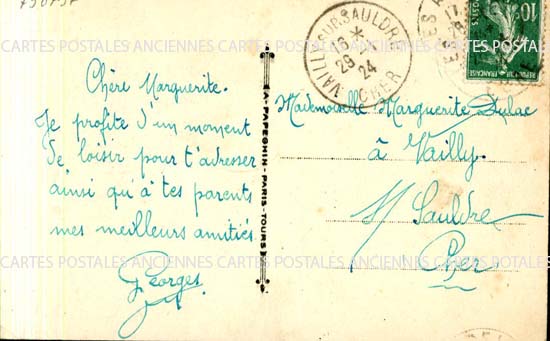 Chère Marguerite.
Je profite d'un moment
de loisir pour t'adresser
ainsi qu'à tes parents
mes meilleurs amitiés
Georges
A. PAPEGHIN - PARIS - TOURS
VAILLY-SUR-SAULDRE
16 *
29 24
CHER
10
POSTES
REPUBLIQUE FRANÇAISE
Mademoiselle Marguerite Dulac
à Vailly.
s/ Sauldre
Cher
CARTES POSTALES ANCIENNES CARTES POSTALES ANCIENNES CARTES POSTALES
CARTES POSTALES ANCIENNES CARTES POSTALES ANCIENNES CARTES POSTALES